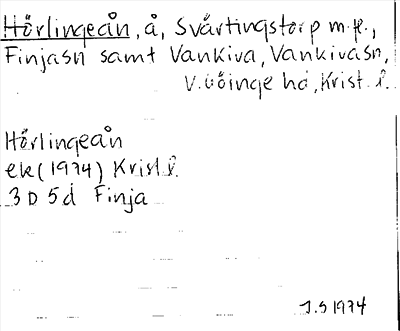 Hörlingeån, å, Svärtingstorp m.fl.,
Finjasn samt Vankiva, Vankivasn,
V. Göinge hd, Krist. l.
Hörlingeån
ek (1974) Krist l.
3 D 5d Finja
J.S 1974